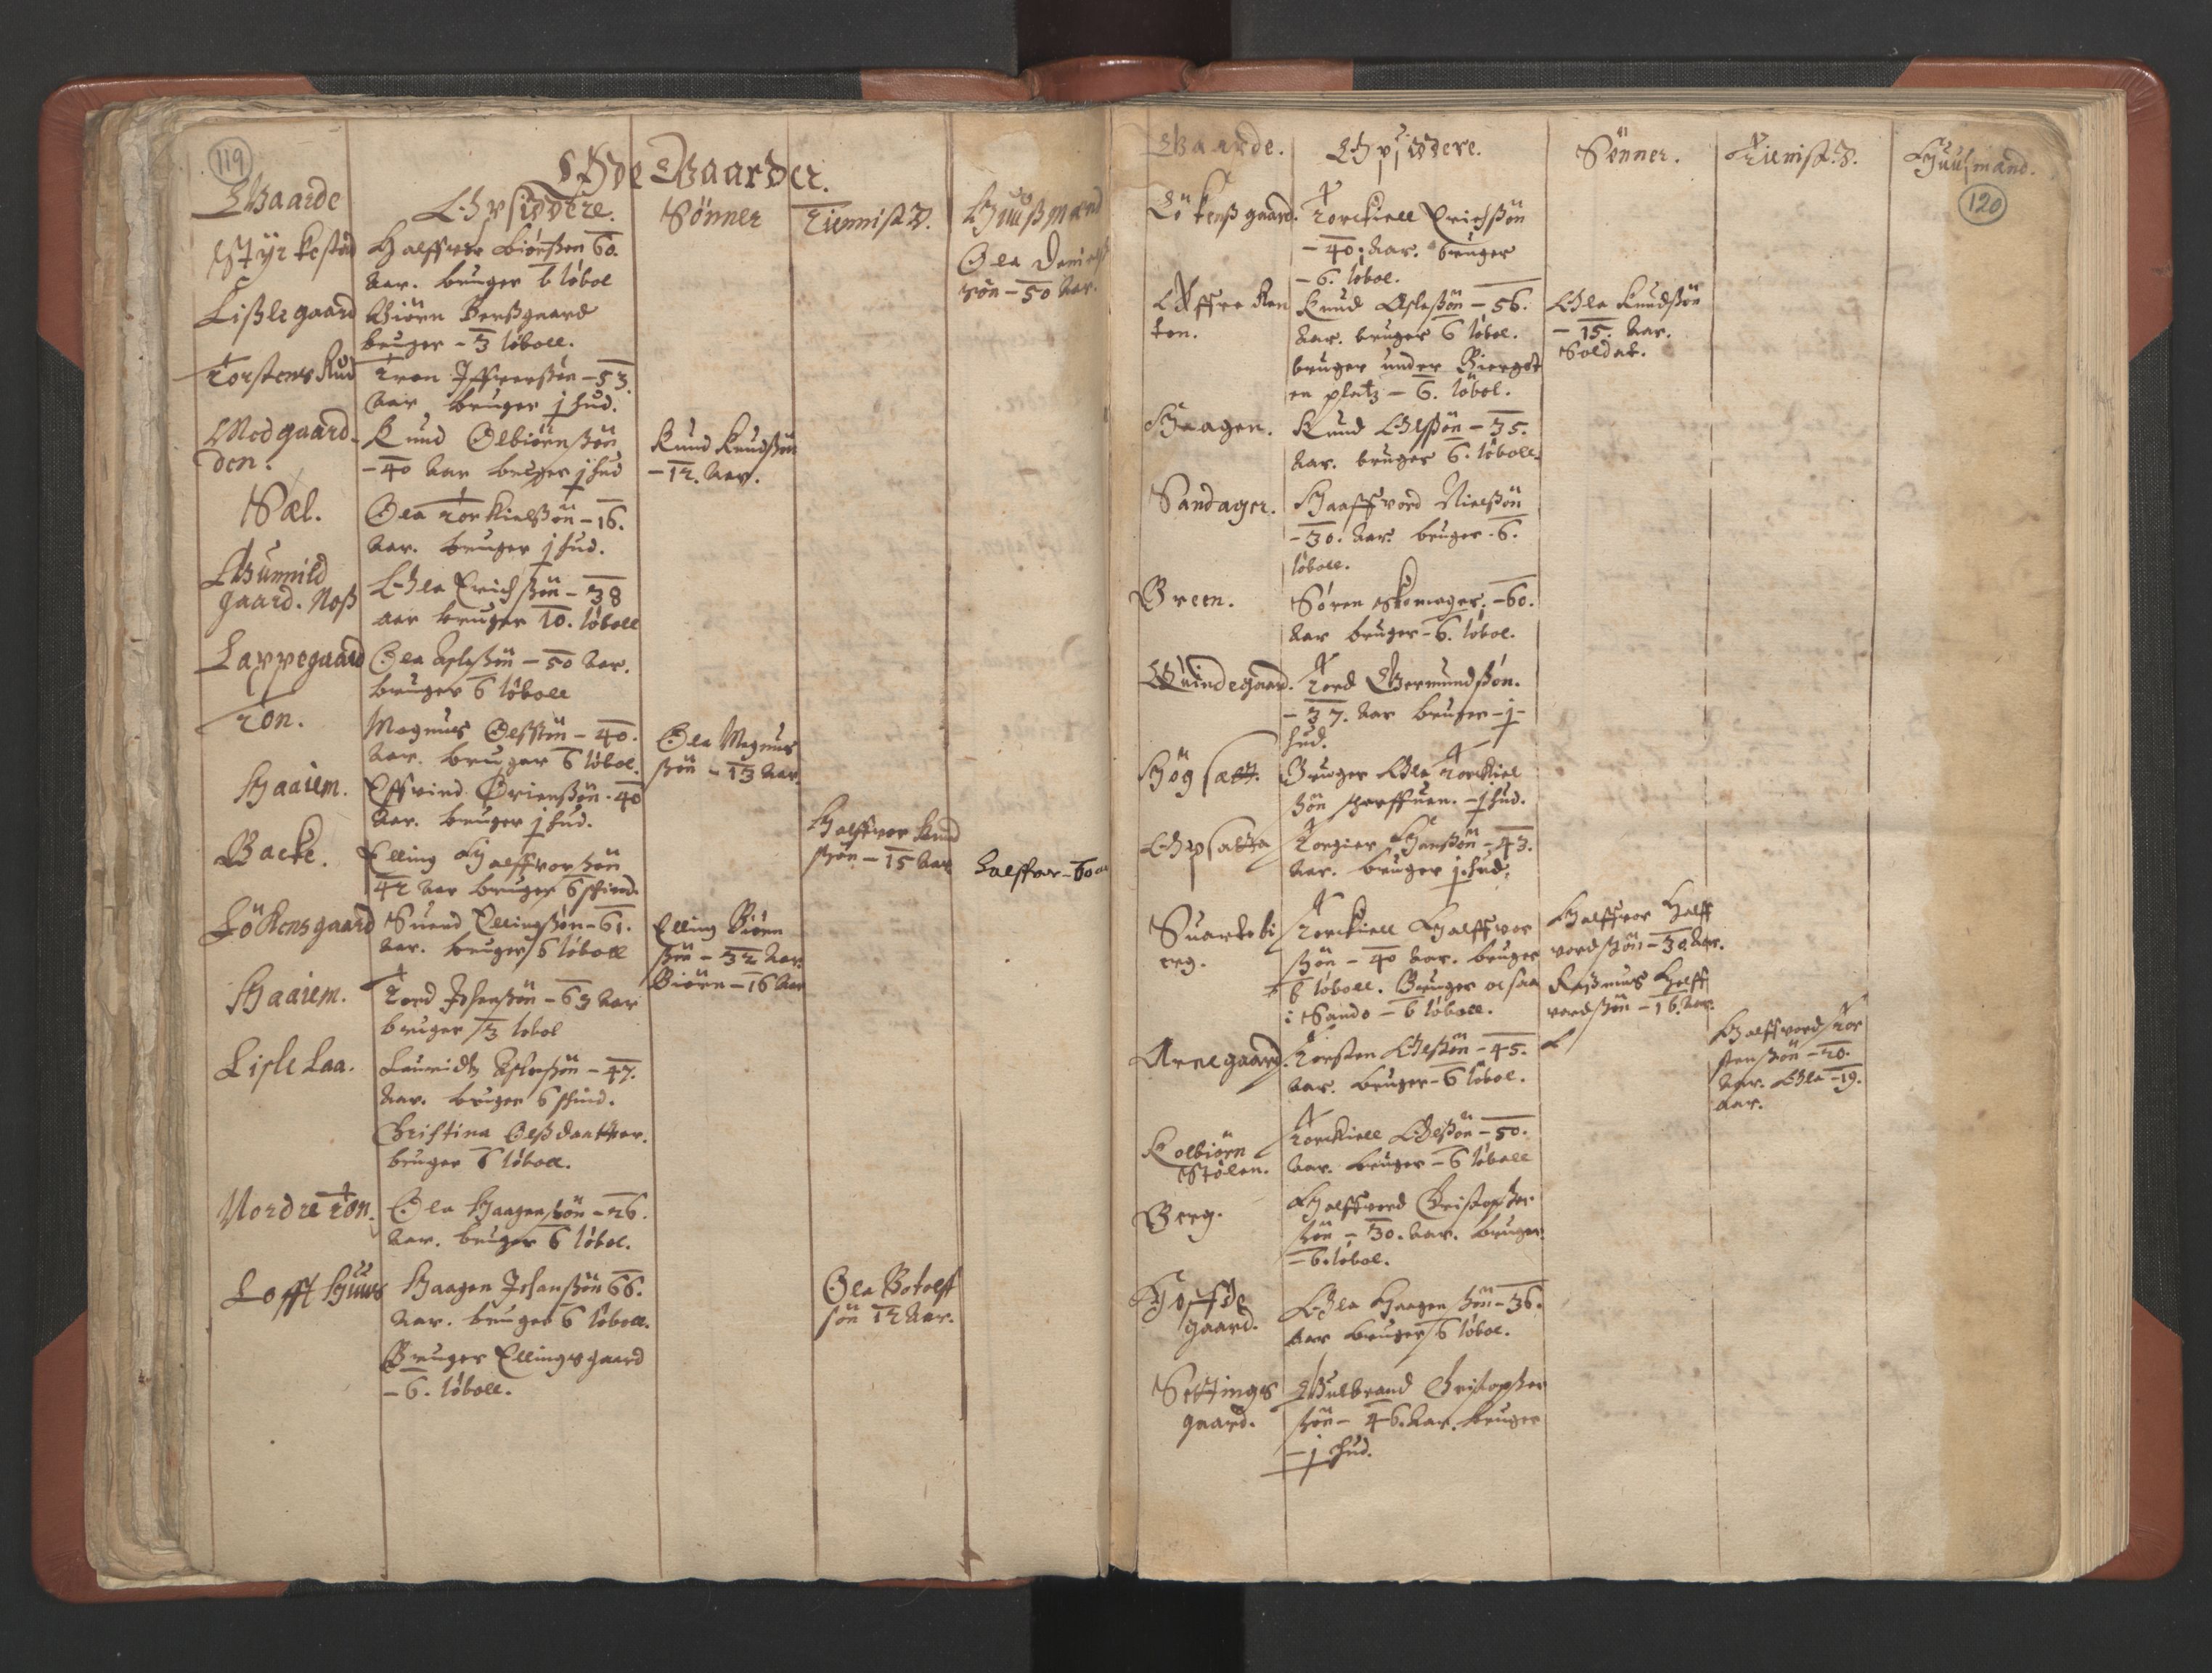 119
Øde Gaarder.
Gaarde
Opsiddere.
Sönner
Tiennist D.
Huußmænd
Styrkestöd
Halffvor Biörnßen 60.
aar. bruger 6 löbol
Ola
sön - 50 Aar.
Lißlegaard
Biörn Berßgaard
bruger - 3 löboll.
Torstens Rud
Tron Iffverßön - 53.
Aar bruger j hud.
Modgaard-
den.
Knud Olbiörnßön
- 40 Aar bruger j hud
Knud Knudßön
- 12. Aar.
Sæl.
Ola Torkielßön - 16.
Aar. bruger j hud.
Gunnild
gaard. Noß
Ola Erichßön - 38
aar bruger 10. löboll
Lappegaard
Ola Aslaßön - 50 Aar.
bruger 6 löboll
Ton.
Magnus Olßön - 40.
Aar. bruger 6 löbol.
Ola Magnus
ßön - 13 Aar.
Haaiem.
Effvind Örienßön - 40
Aar. bruger j hud.
Backe.
Elling Halffvorßön
42 Aar bruger 6 schind.
Halffvor Knud
ßön - 15 Aar
Halffvor - 60 aar
Lökensgaard
Suend Ellingßön - 61.
Aar. bruger 6 löboll
Elling Biörn
ßön - 32 Aar.
Biörn - 16 Aar
Haaiem.
Tord Johanßön - 63 Aar
bruger 3 löbol
Lisle Laa.
Lauridtz Aslaßön - 47.
Aar. bruger 6 schind.
Christina Olßdaatter.
bruger 6 löboll.
Nordre Ton.
Ola Haagenßön - 26.
Aar. bruger 6 löbol.
Lofft Huus
Haagen Johanßön 66.
Aar. bruger 6 löboll.
Ola Botolff
sön 12 Aar.
Bruger Ellingsgaard
- 6. löboll.
Gaarde.
Opsiddere.
Sönner.
Tienist. D.
Huußmænd.
120
Lökensgaard.
Torckiell Erichßön
- 40. Aar. bruger
- 6. löbol.
Öffre Ren
ton.
Knud Aslaßön - 56.
Aar. bruger 6 löbol.
bruger under Biergöe
en platz - 6. löbol.
Ola Knudßön
- 15. Aar.
Soldat.
Haagen.
Knud Olßön - 35.
Aar. bruger 6. löboll.
Sandager.
Haaffvord Nielßön
- 30. Aar. bruger - 6.
löboll.
Breen.
Sören Skomager. - 60.
Aar bruger - 6. löbol.
Quindegaard.
Tord Germundßön.
- 37. Aar bruger - j -
hud.
Högsætt.
Bruger Ola Torckiel
ßön - j hud.
Opsatta
Torgier Hanßön - 43.
Aar. bruger j. hud.
Suartebi
erg.
Torckiell Halffvor
ßön - 40 Aar. bruger
6 löboll. Bruger ocsaa
i Sando - 6 löboll.
Halffvor Halff
vordßön - 30. Aar.
Raßmus Halff
vordßön - 16. Aar.
Arnegaard.
Torsten Olßön - 45.
Aar. bruger - 6 löbol.
Halffvord Tor
stenßön - 20.
Aar. Ola - 19.
Aar.
Kolbiörn
Stölen.
Torckiell Olßön - 50.
Aar. bruger - 6 löboll
Berg.
Halffvord Christopher
ßön - 30. Aar. bruger
- 6. löbol.
Hoffde
gaard.
Ola Haagenßön - 36.
Aar bruger 6 löbol.
Settings
gaard.
Gulbrand Christopher
ßön - 46. Aar. bruger
- j hud.